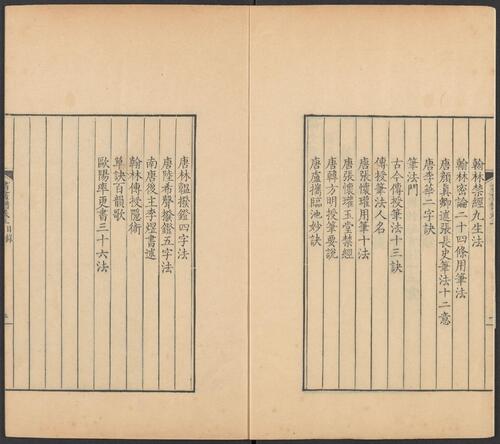 翰林禁經九生法
翰林密論二十四條用筆法
唐顏真卿述張長史筆法十二意
唐李華二字訣
筆法門
古今傳授筆法十三訣
傳授筆法人名
唐張懷瓘用筆十法
唐張懷瓘玉堂禁經
唐韓方明授筆要說
唐盧攜臨池妙訣
唐林韞撥鐙四字法
唐陸希聲撥鐙五字法
南唐後主李煜書述
翰林傳授隱術
草訣百韻歌
歐陽率更書三十六法